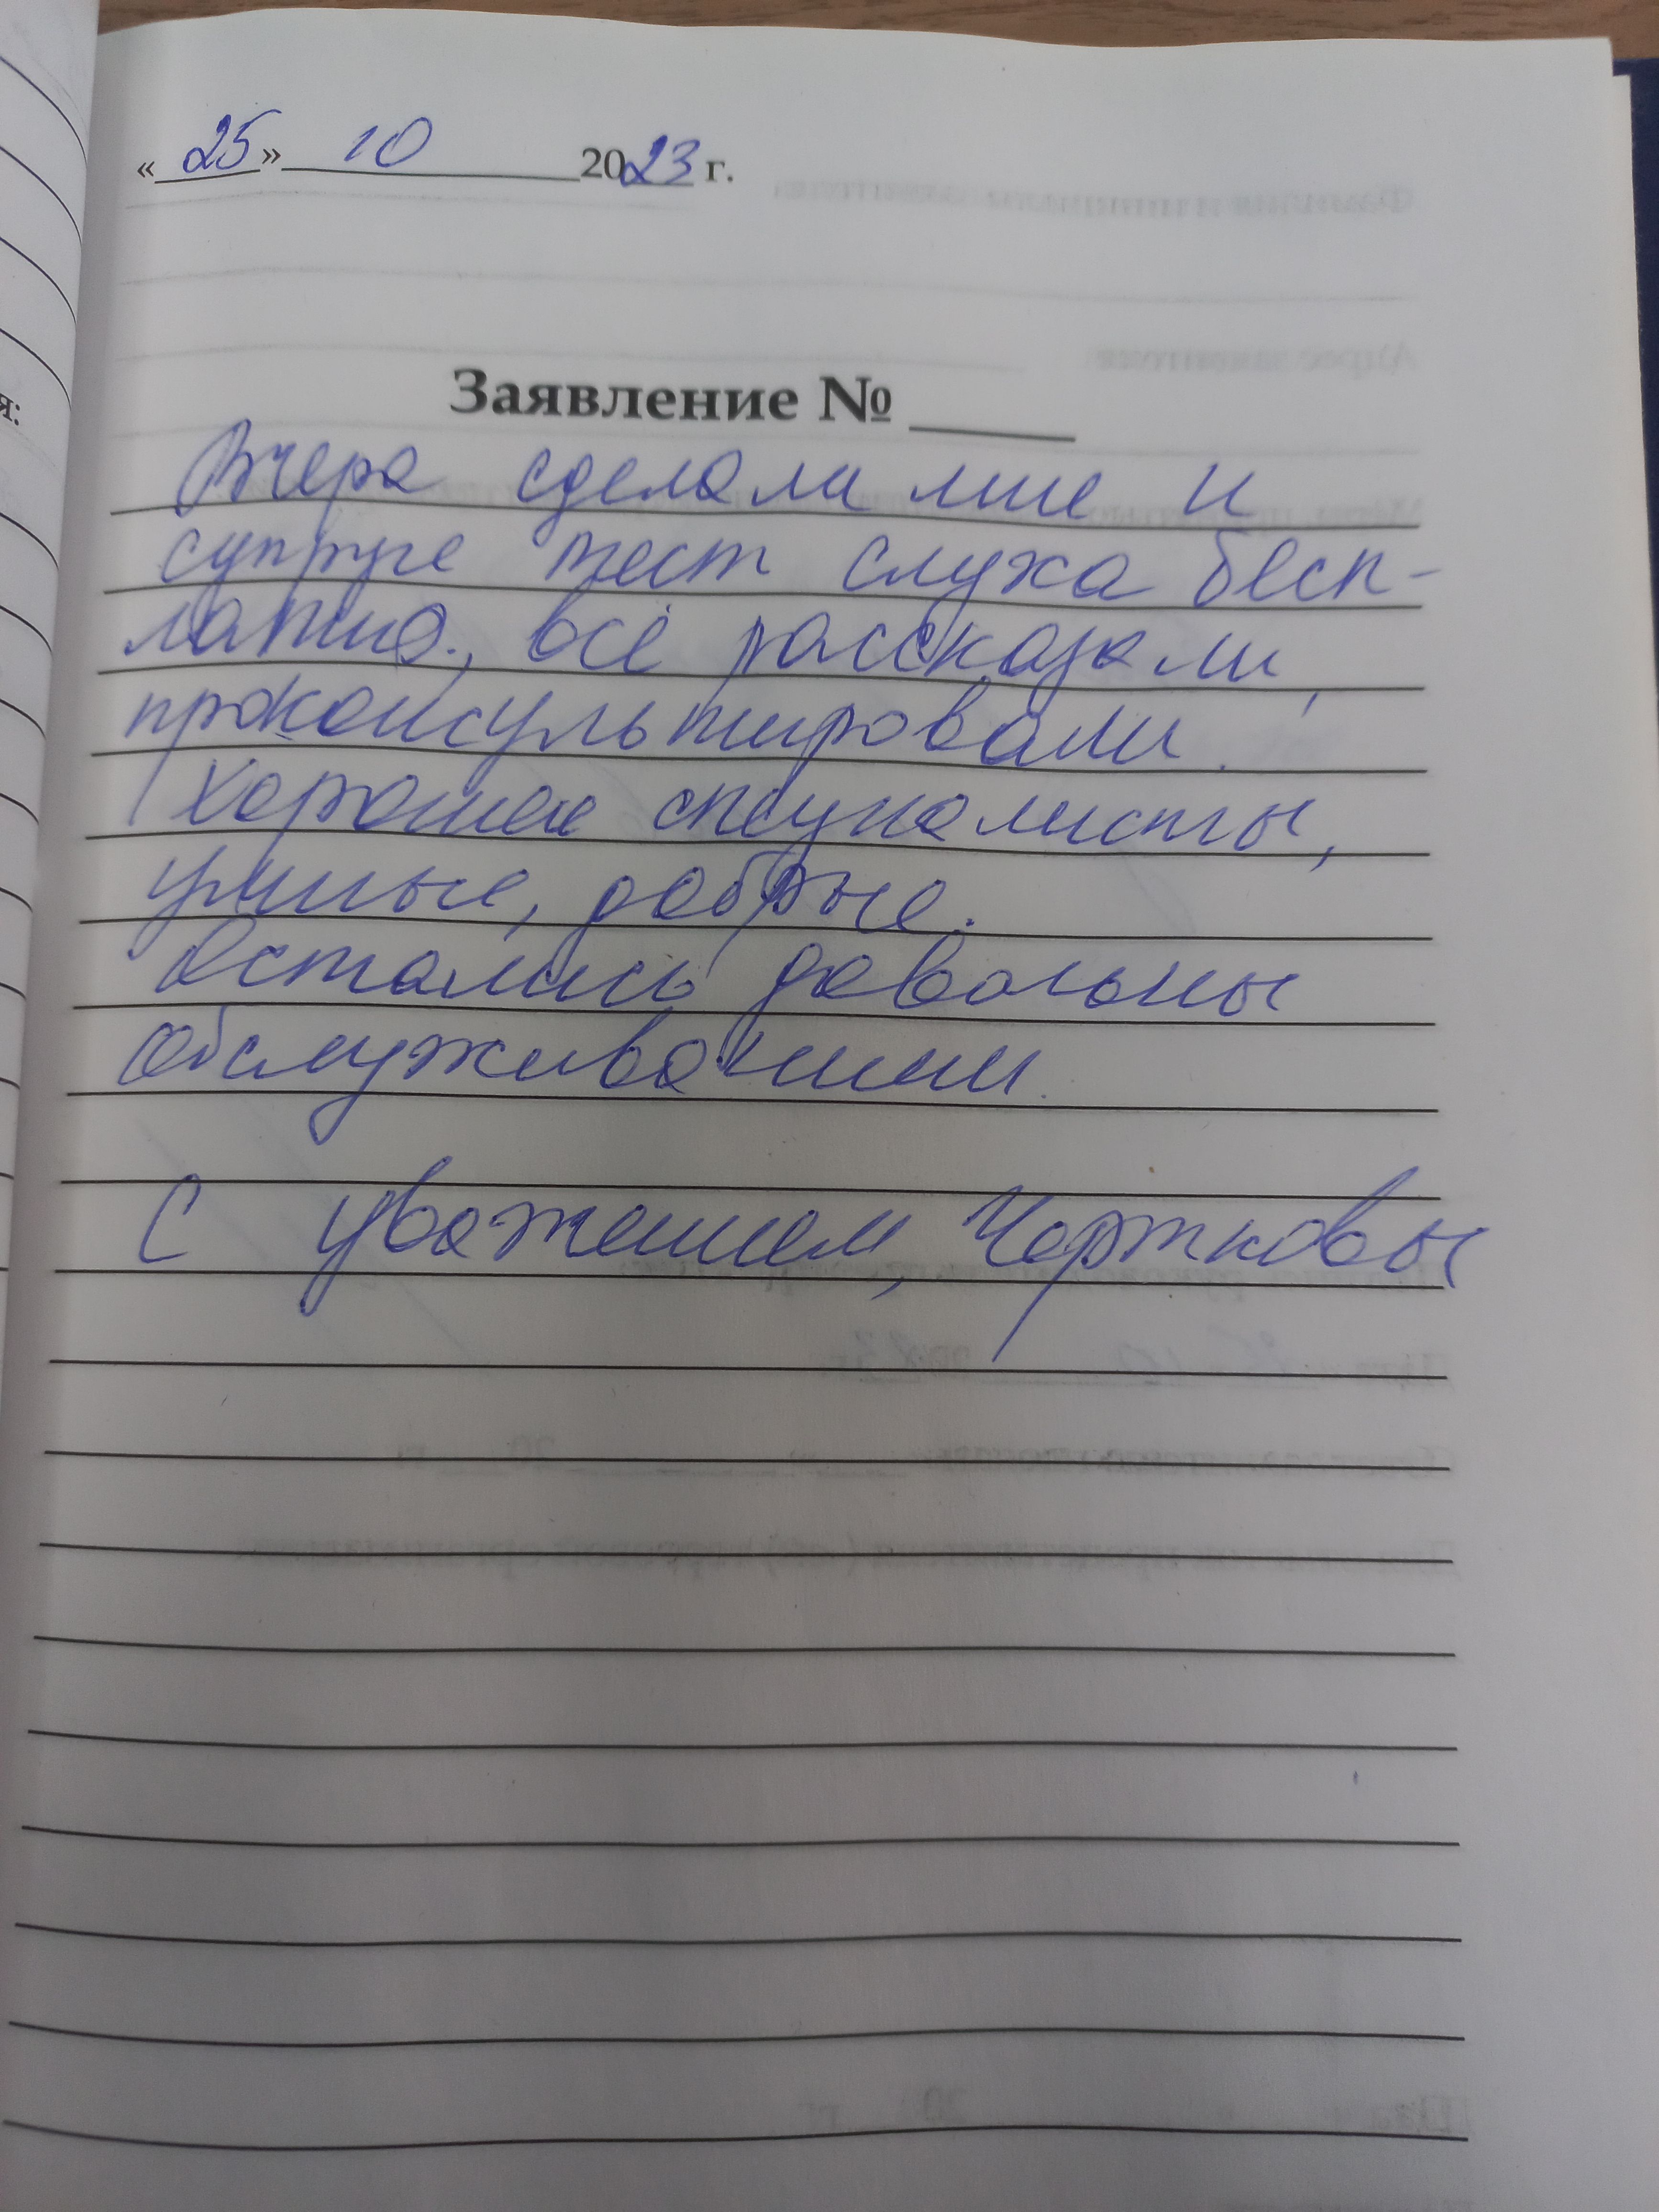 «25» 10 2023 г.
Заявление №
Вчера сделали мне и
супруге тест слуха бесп-
латно, всё рассказали,
проконсультировали.
Хорошие специалисты,
умные, добрые.
Остались довольны
обслуживанием.
С уважением, Чертковы
я: